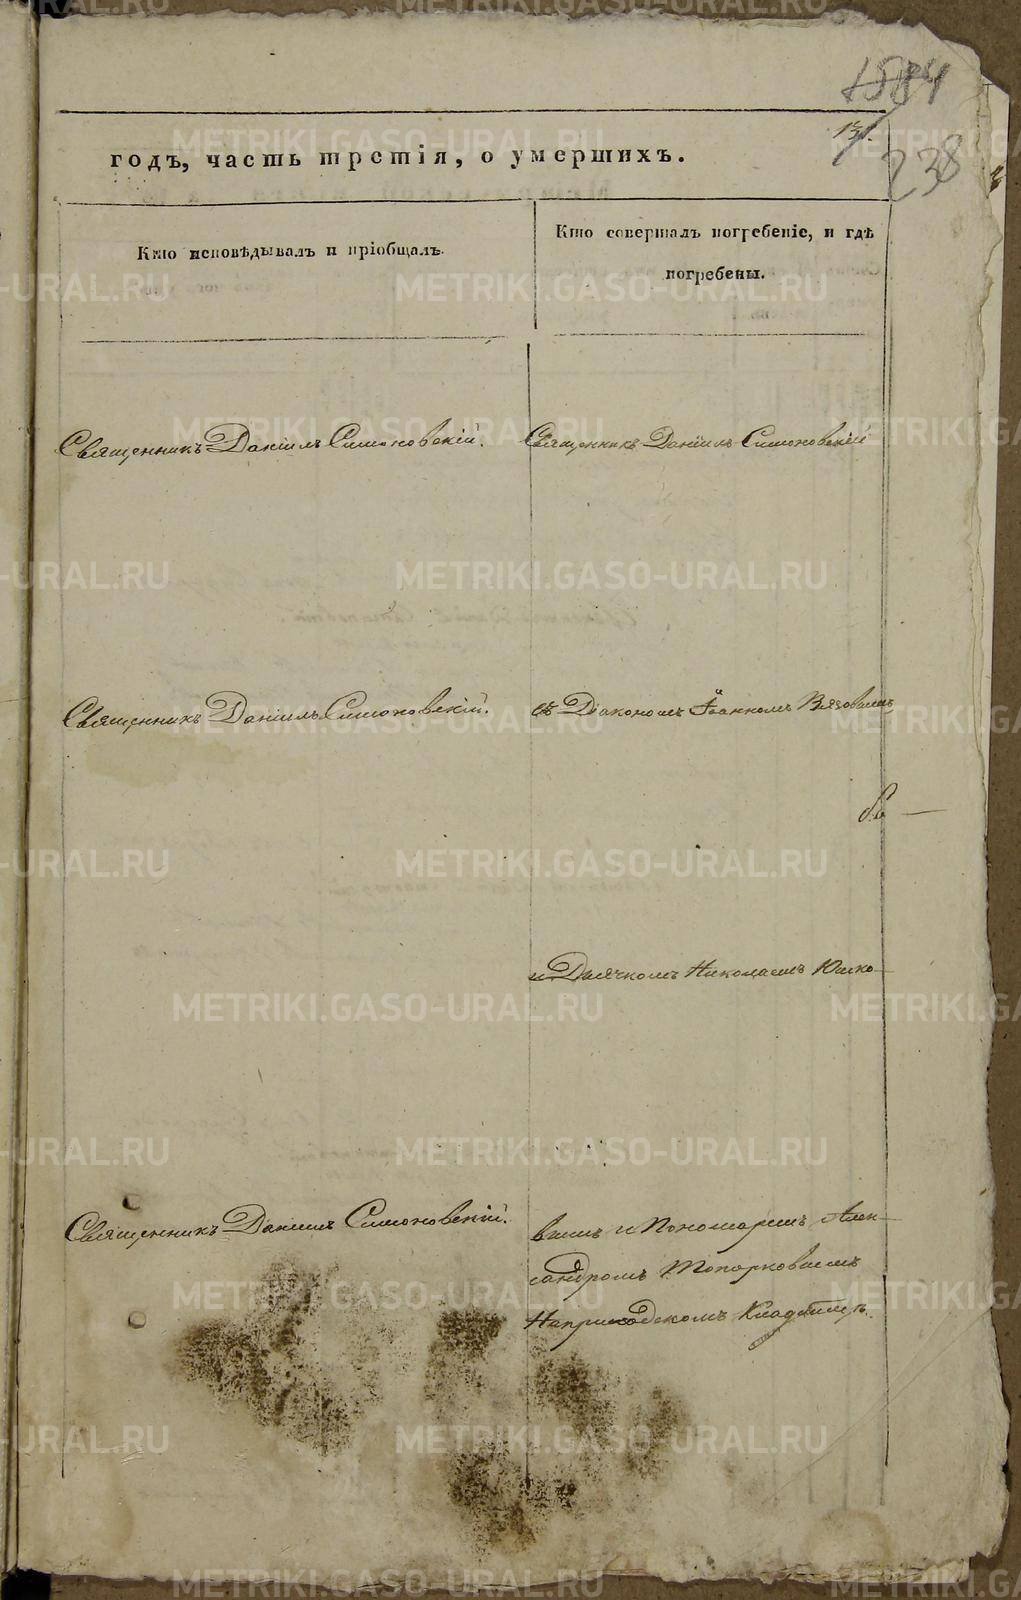 1584
131.
238
годъ, часть третія, о умершихъ.
Кто исповѣдывалъ и пріобщалъ.
Кто совершалъ погребеніе, и гдѣ
погребены.
Священникъ Даніилъ Симоновскій.
Священникъ Даніилъ Симоновскій
Священникъ Даніилъ Симоновскій.
съ Діакономъ Іоанномъ Вязовымъ
и Дьячкомъ Николаемъ Юшко-
Священникъ Даніилъ Симоновскій.
вымъ и Пономаремъ Алек-
сандромъ Топорковымъ
На приходскомъ Кладбищѣ.
METRIKI.GASO-URAL.RU